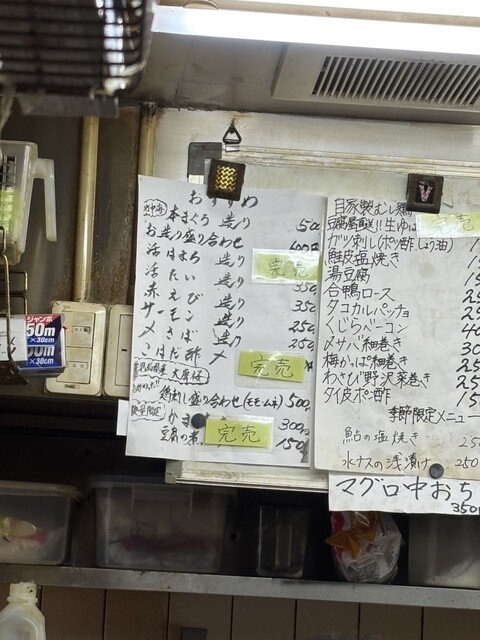 おすすめ
本まぐろ 造り 50
お造り盛り合わせ 600円
活はまち 造り 完売
活たい 造り 350
赤えび 造り 350
サーモン 造り 250
〆さば 造り 250
こはだ酢〆 完売
大原極
鶏刺し盛り合わせ(モモムネ) 500円
数量限定 かま 完売 300円
豆腐の煮 150
自家製むし鶏 完売
豆腐屋直送!!生ゆば
ガツ刺し(ポン酢、しょう油) 1
鮭皮塩焼き 1
湯豆腐 1
合鴨ロース 25
タコカルパッチョ 25
くじらベーコン 4
〆サバ細巻き 30
梅かっぱ細巻き 25
わさび野沢菜巻き 25
タイ皮ポン酢 15
季節限定メニュー
鮎の塩焼き 250
水ナスの浅漬け 250
マグロ中おち
350円
ジャンボ
50m
×30cm
50m
×30cm